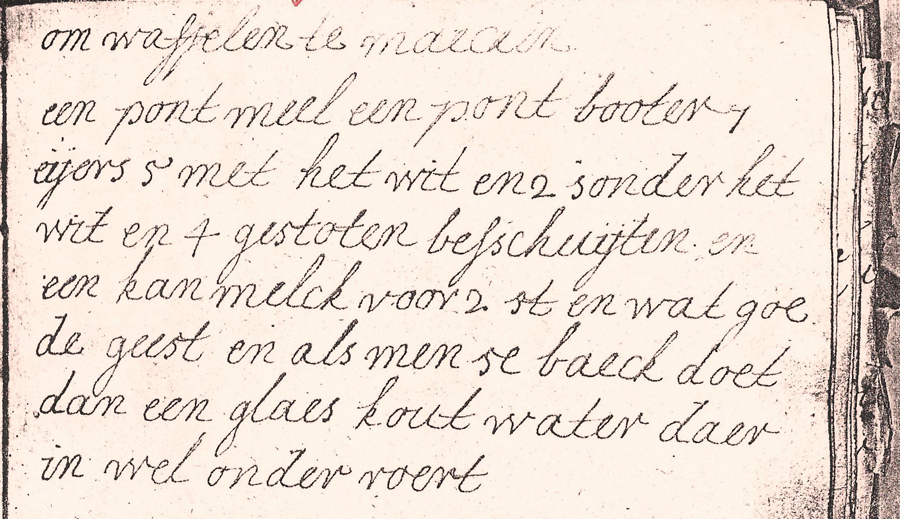 om waffelen te maecken
een pont meel een pont booter 7
eijers 5 met het wit en 2 sonder het
wit en 4 gestoten besschuijten en
een kan melck voor 2 st en wat goe
de geest en als men se baeck doet
dan een glaes kout water daer
in wel onder roert